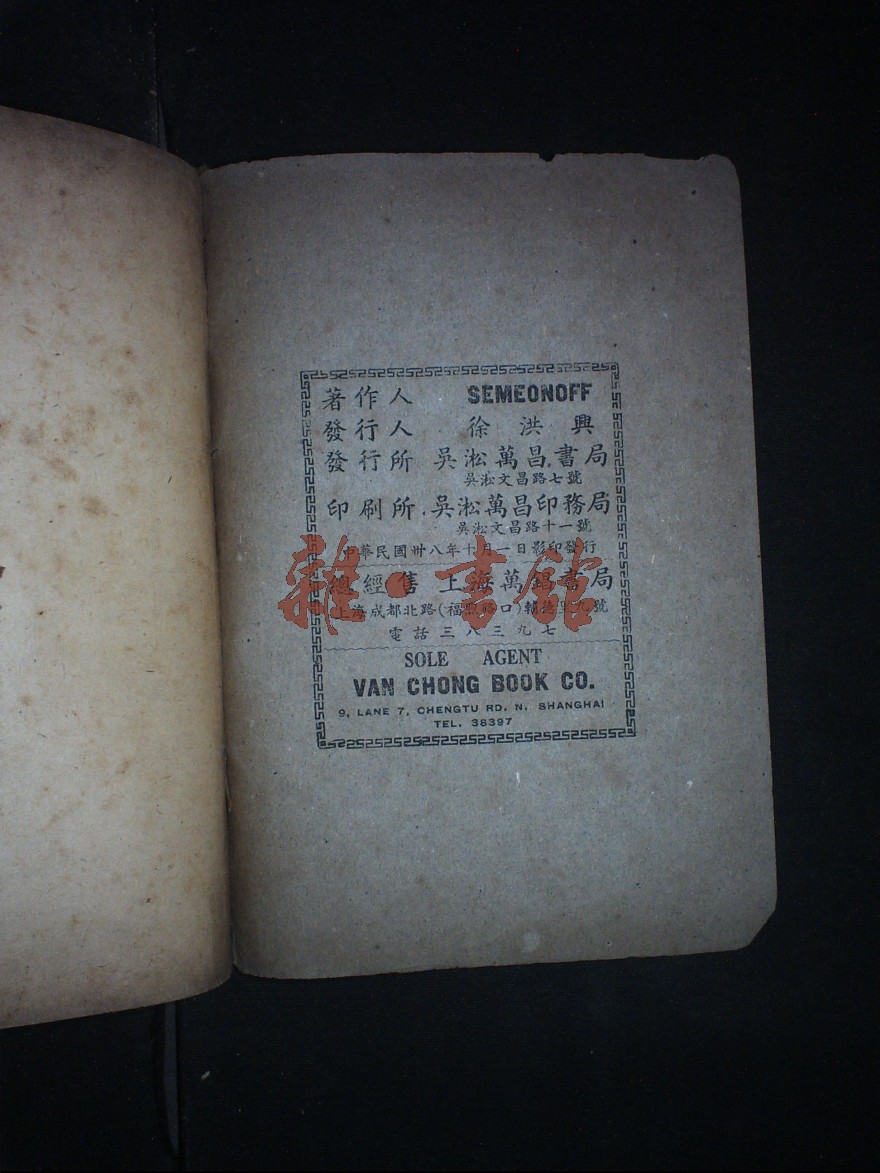 著作人 SEMEONOFF
發行人 徐洪興
發行所 吳淞萬昌書局
吳淞文昌路七號
印刷所 吳淞萬昌印務局
吳淞文昌路十一號
中華民國卅八年十月一日影印發行
總經售 上海萬書局
上海成都北路(福煦路口)輔德里九號
電話三八三九七
SOLE AGENT
VAN CHONG BOOK CO.
9, LANE 7, CHENGTU RD. N. SHANGHAI
TEL. 38397
雜·書館